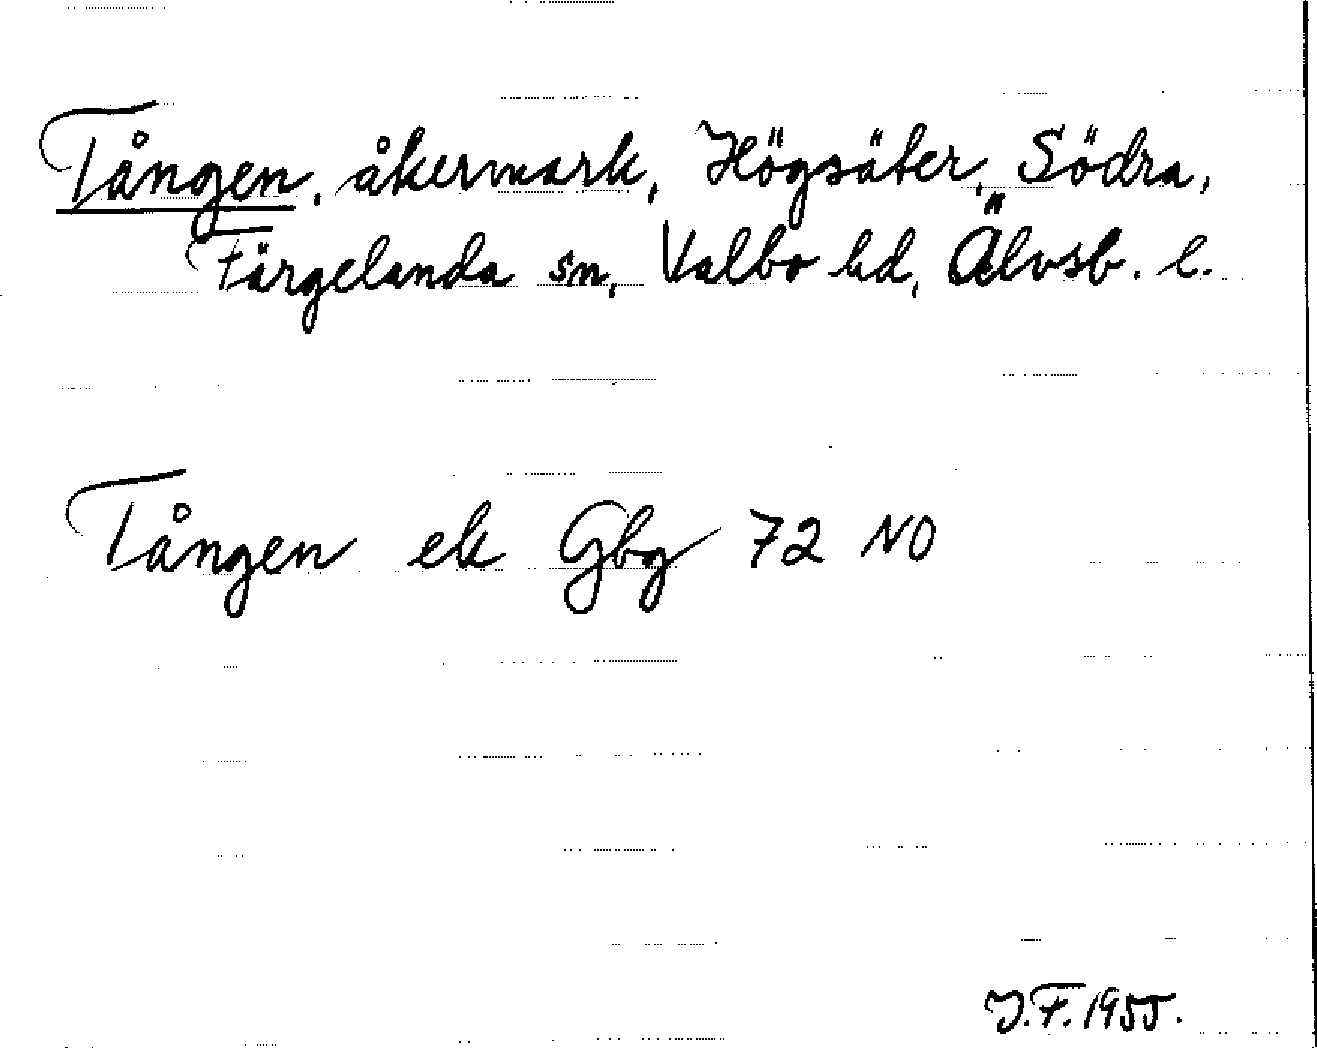 Tången, åkermark, Högsäter, Södra,
Färgelanda sn, Valbo hd, Älvsb. l.
Tången ek Gbg 72 NO
J.F. 1955.